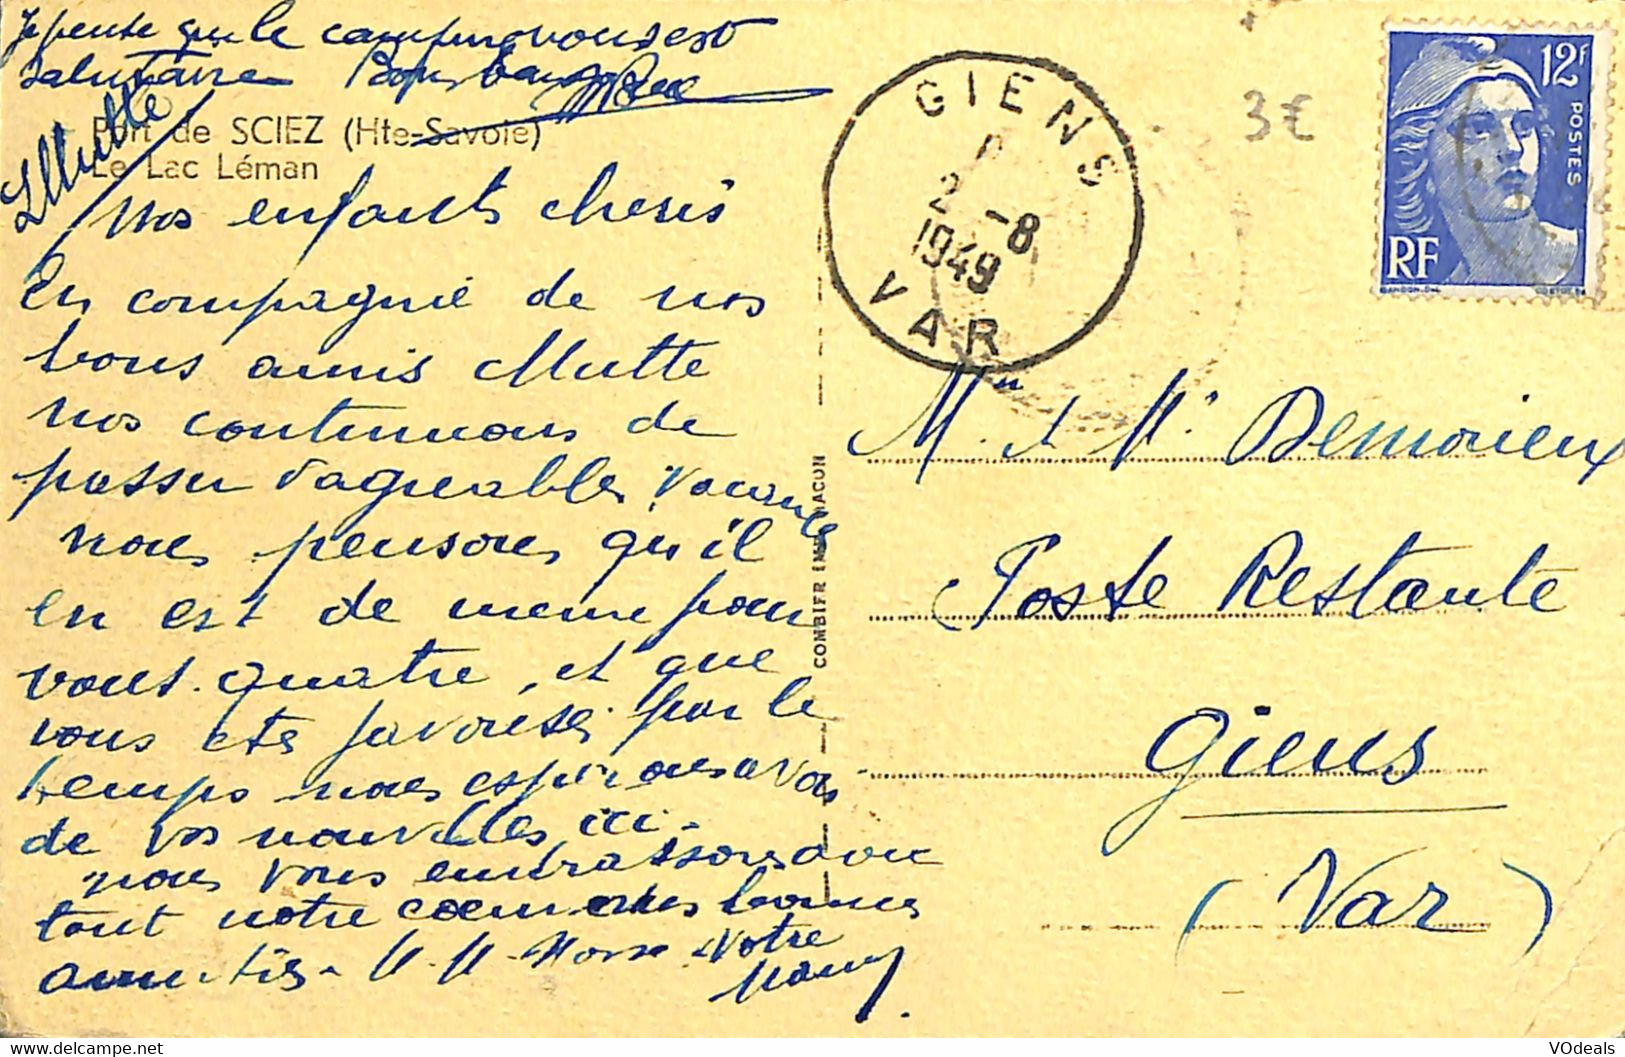 Je pense que le camping vous est
salutaire
Mutte
Port de SCIEZ (Hte-Savoie)
Le Lac Léman
Nos enfants cheris
En compagnie de nos
bons amis Mutte
nos continuons de
passer d'agreables vacances
nous pensons qu'il
en est de meme pour
vous quatre, et que
vous etes favorisés par le
temps nous esperons avoir
de vos nouvelles ici.
nous vous embrassons avec
tout notre coeur
amitiés - Votre
COMBIER IMP. MACON
GIENS
2 -8
1949
VAR
3€
12F
POSTES
RF
Mr et Me Demorieux
Poste Restante
Giens
(Var)
VOdeals
www.delcampe.net